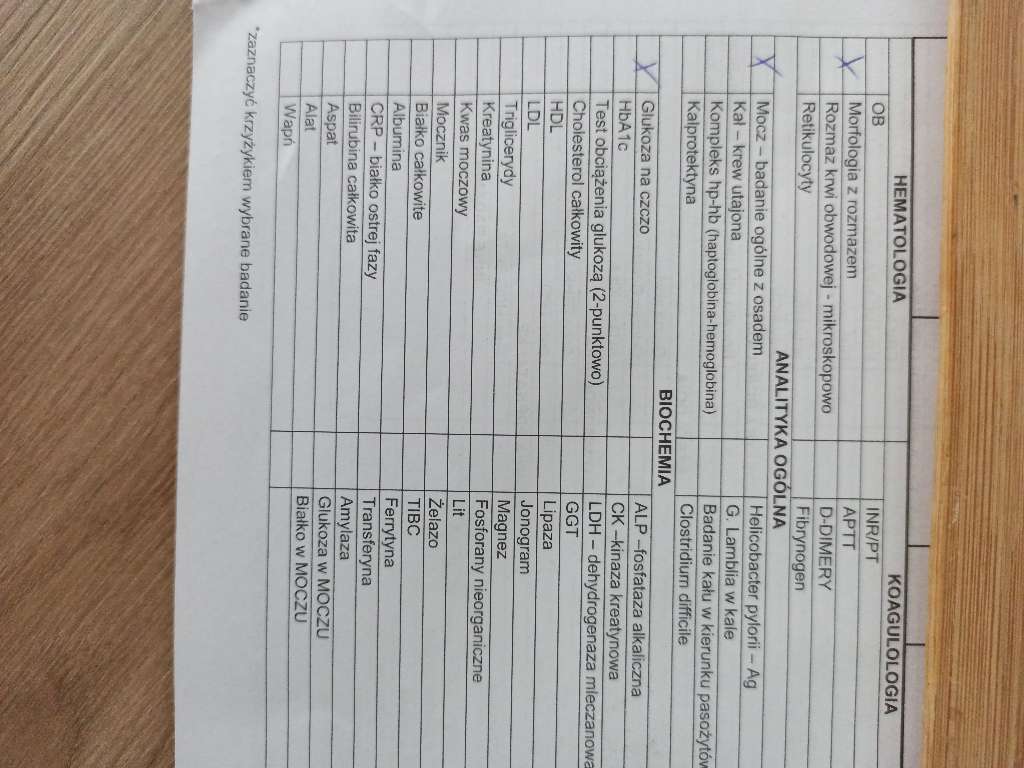 HEMATOLOGIA KOAGULOLOGIA
OB INR/PT
X Morfologia z rozmazem APTT
Rozmaz krwi obwodowej - mikroskopowo D-DIMERY
Retikulocyty Fibrynogen
ANALITYKA OGÓLNA
X Mocz – badanie ogólne z osadem Helicobacter pylorii – Ag
Kał – krew utajona G. Lamblia w kale
Kompleks hp-hb (haptoglobina-hemoglobina) Badanie kału w kierunku pasożytów
Kalprotektyna Clostridium difficile
BIOCHEMIA
X Glukoza na czczo ALP –fosfataza alkaliczna
HbA1c CK –kinaza kreatynowa
Test obciążenia glukozą (2-punktowo) LDH – dehydrogenaza mleczanowa
Cholesterol całkowity GGT
HDL Lipaza
LDL Jonogram
Triglicerydy Magnez
Kreatynina Fosforany nieorganiczne
Kwas moczowy Lit
Mocznik Żelazo
Białko całkowite TIBC
Albumina Ferrytyna
CRP – białko ostrej fazy Transferyna
Bilirubina całkowita Amylaza
Aspat Glukoza w MOCZU
Alat Białko w MOCZU
Wapń
*zaznaczyć krzyżykiem wybrane badanie